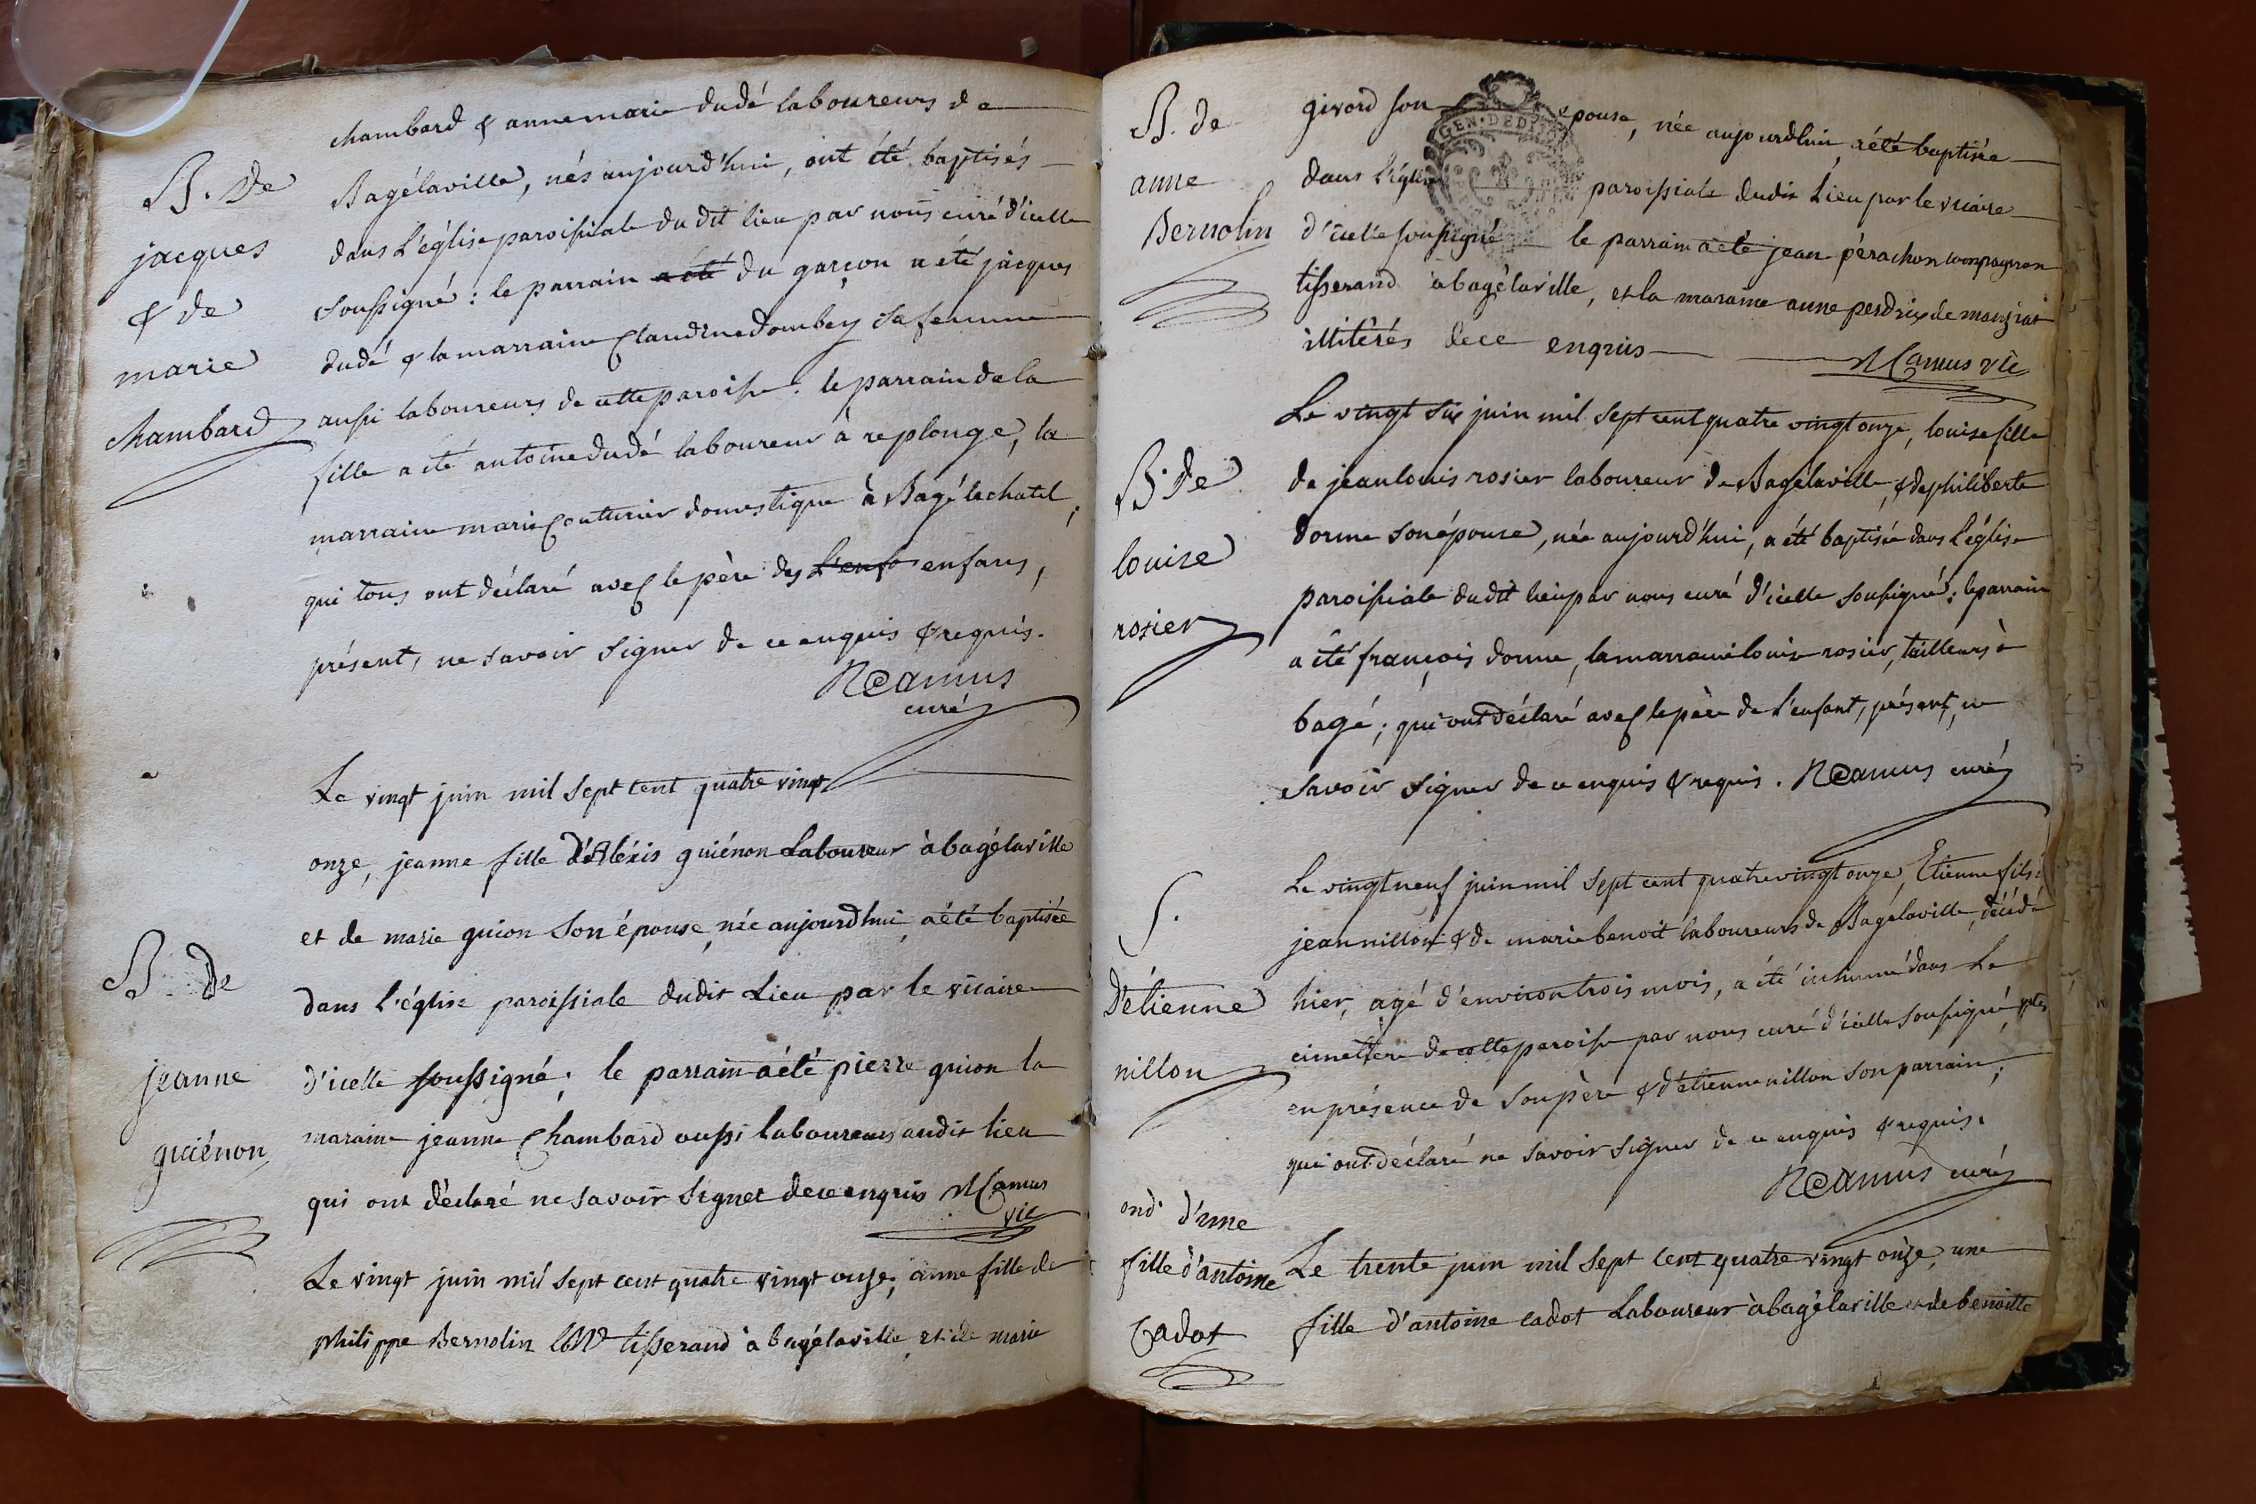 chambard & anne marie dudé laboureurs de
B. De
jacques
& de
marie
chambard
Bagélaville, nés aujourd'hui, ont été baptisés
dans L'église paroissiale du dit lieu par nous curé d'icelle
soussigné : le parrain a été du garçon a été jacques
dudé & la marraine Claudine Dombey sa femme
aussi laboureurs de cette paroisse. le parrain de la
fille a été antoine dudé laboureur à replonge, la
marraine marie Couturier domestique à Bagé le chatel,
qui tous ont déclaré avec le père des L'enf enfans,
présent, ne savoir signer de ce enquis & requis.
NCamus
curé
B. de
jeanne
guiénon
Le vingt juin mil sept cent quatre vingt
onze, jeanne fille d'Aléxis guiénon Laboureur à bagélaville
et de marie guion son épouse, née aujourdhui, a été baptisée
dans l'église paroissiale dudit Lieu par le vicaire
d'icelle soussigné ; le parrain a été pierre guion la
maraine jeanne Chambard aussi laboureurs audit lieu
qui ont déclaré ne savoir signer de ce enquis NCamus
vic
Le vingt juin mil sept cent quatre vingt onze, anne fille de
philippe Bernolin tisserand à bagélaville et de marie
B. de
anne
Bernolin
givord son épouse, née aujourdhui, a été baptisée
dans l'église paroissiale dudit Lieu par le vicaire
d'icelle soussigné le parrain a été jean pérachon compagnon
tisserand à bagélaville, et la maraine anne perdrix de manziat
illitérés de ce enquis NCamus vic
B. De
louise
rosier
Le vingt six juin mil sept cent quatre vingt onze, louise fille
de jean louis rosier laboureur de Bagélaville, & de philiberte
dorme son épouse, née aujourd'hui, a été baptisée dans L'église
paroissiale du dit lieu par nous curé d'icelle soussigné : le parrain
a été françois dorme, la marraine louise rosier, tailleurs à
bagé ; qui ont déclaré avec le père de l'enfant, présent, ne
savoir signer de ce enquis & requis. NCamus curé
S.
D'étienne
nillon
Le vingt neuf juin mil sept cent quatre vingt onze, Etienne fils à
jean nillon & de marie benoit laboureurs de Bagélaville, décédé
hier, agé d'environ trois mois, a été inhumé dans Le
cimetière de cette paroisse par nous curé d'icelle soussigné,
en présence de son père & d'étienne nillon son parrain,
qui ont déclaré ne savoir signer de ce enquis & requis.
NCamus curé
ond. d'une
fille d'antoine
Cadot
Le trente juin mil sept cent quatre vingt onze, une
fille d'antoine cadot Laboureur à bagélaville et de benoitte